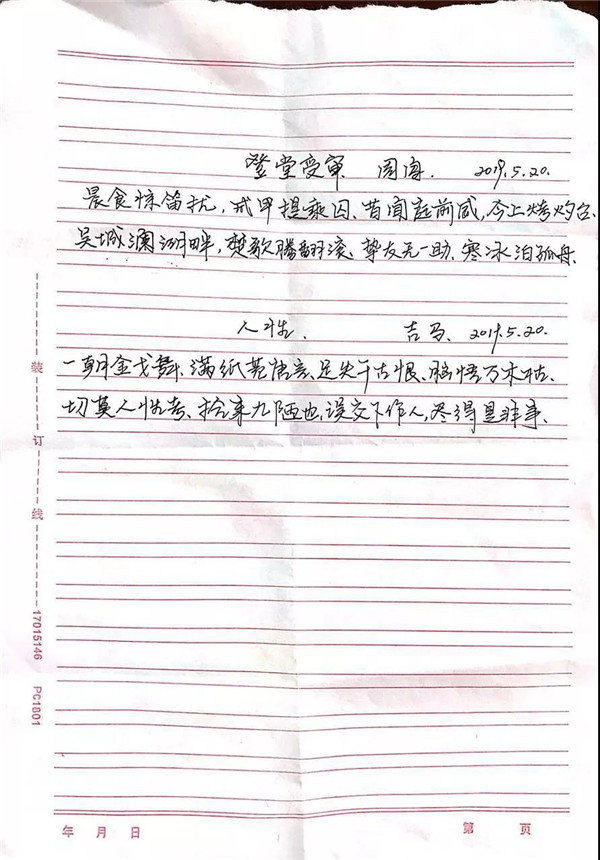 登堂受审 周海. 2019.5.20.
晨食惊笛扰,戒甲提乘囚、昔闻庭前威,今上烤灼台.
吴城澜湖畔,楚歌腾翻滚、挚友无一助、寒冰泊孤舟.
人性. 吉马、2019.5.20.
一朝金戈舞、满纸荒唐言、足失千古恨、脑悟万木枯.
切莫人性考、拾来九陋也、误交下作人,尽得是非事、
装 订 线 17015146 PC1801
年 月 日 第 页